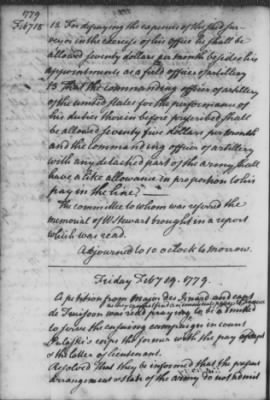 1779
Feb 18
12 For defraying the expences of the said sur
veior in the exercise of his Office he shall be
allowed seventy dollars per month besides his
appointments as a field officer of artillery
13 That the commanding officer of artillery
of the united states for the performance of
his duties therein before prescribed shall
be allowed seventy five dollars per month
and the commanding officer of artillery
with any detached part of the army shall
have a like allowance in proportion to his
pay in the line
The committee to whom was refered the
memorial of W Stewart brought in a report
which was read.
Adjourned to 10 oClock to morrow.
Friday Feb 19. 1779.
A petition from major des and capt
de was read praying to be admitted
to serve the ensuing campaign in count
Pulaski's corps the former with the pay of capt
& the latter of lieutenant.
Resolved That they be informed that the present
arrangement & state of the army do not admit